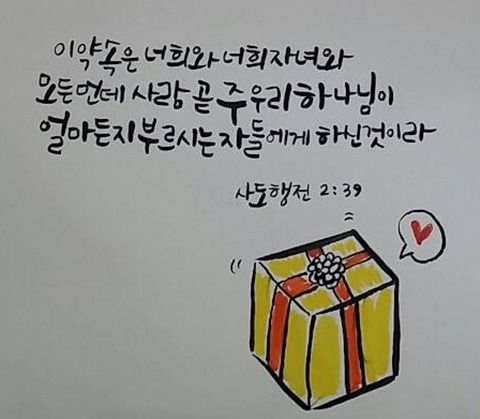 이 약속은 너희와 너희 자녀와
모든 먼데 사람 곧 주 우리 하나님이
얼마든지 부르시는 자들에게 하신 것이라
사도행전 2:39